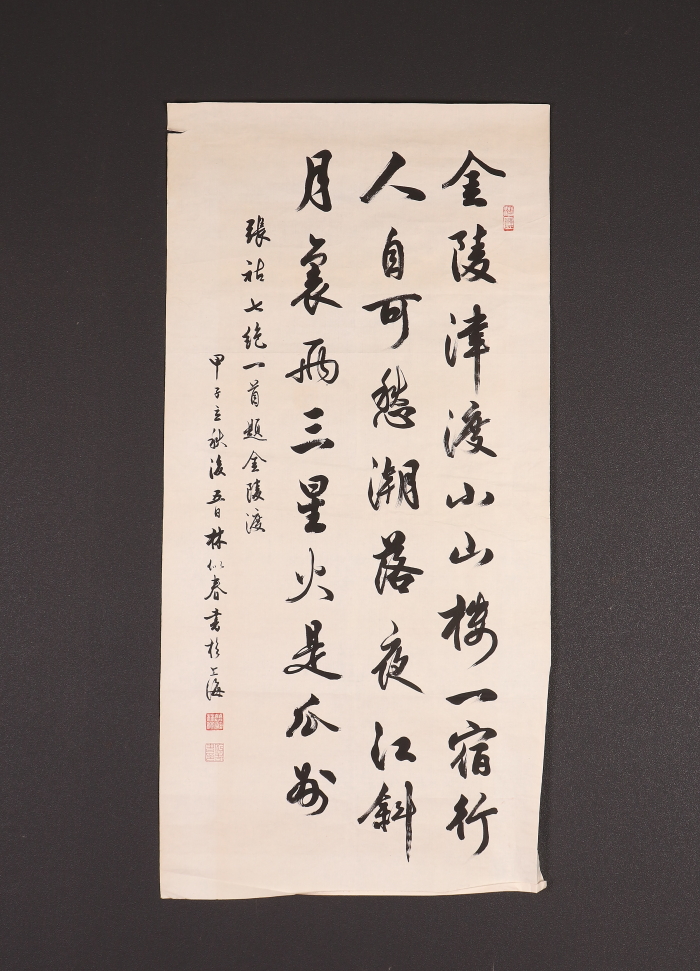 金陵津渡小山樓一宿行
人自可愁潮落夜江斜
月裏兩三星火是瓜州
張祜七絶一首題金陵渡
甲子立秋後五日林似春書於上海